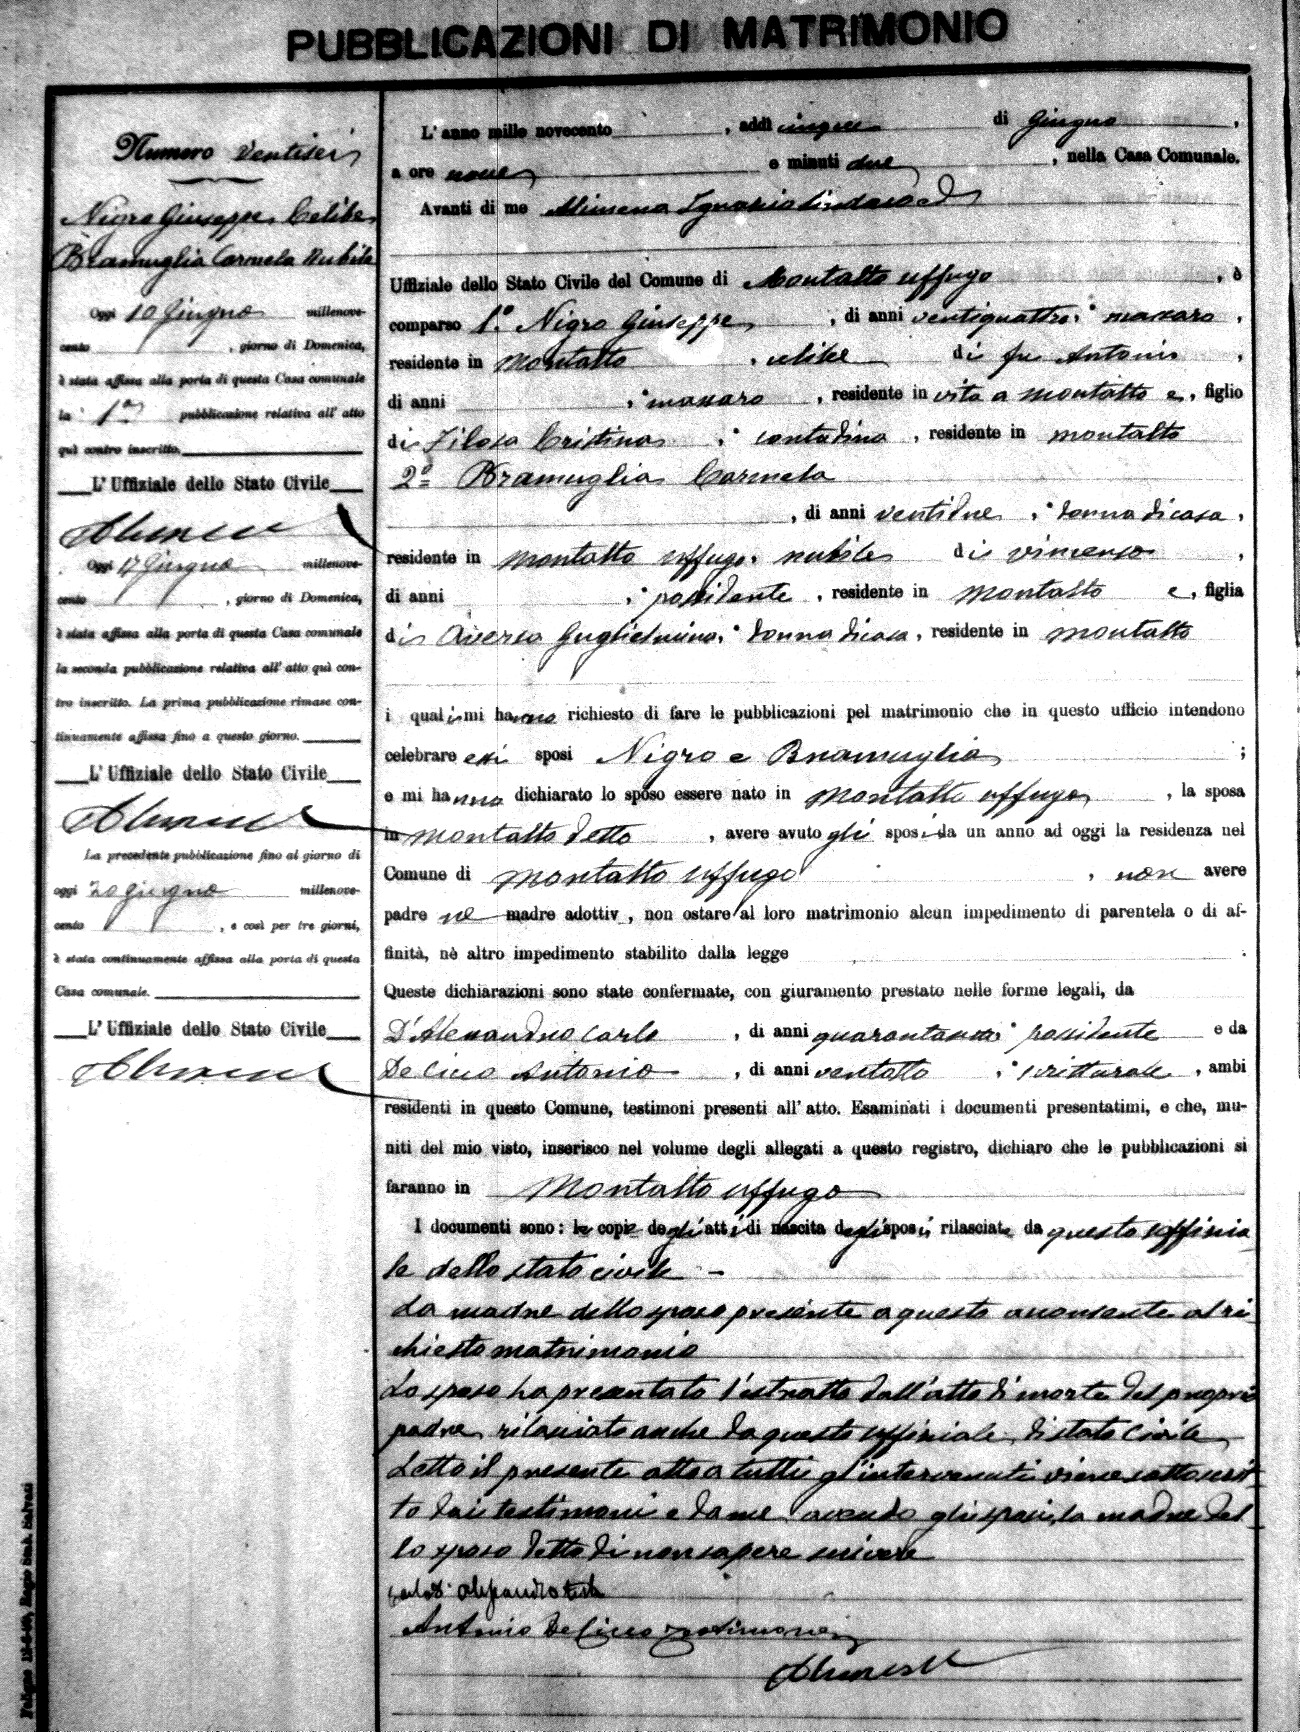 PUBBLICAZIONI DI MATRIMONIO
Numero Ventisei
Nigro Giuseppe Celibe
Bramuglia Carmela Nubile
Oggi 10 Giugno millenove-
cento , giorno di Domenica,
è stata affissa alla porta di questa Casa comunale
la 1a pubblicazione relativa all' atto
quì contro inscritto.
L' Uffiziale dello Stato Civile
Oggi 17 Giugno millenove-
cento , giorno di Domenica,
è stata affissa alla porta di questa Casa comunale
la seconda pubblicazione relativa all' atto quì con-
tro inscritto. La prima pubblicazione rimase con-
tinuamente affissa fino a questo giorno.
L' Uffiziale dello Stato Civile
La precedente pubblicazione fino al giorno di
oggi 20 giugno millenove-
cento , e così per tre giorni,
è stata continuamente affissa alla porta di questa
Casa comunale.
L' Uffiziale dello Stato Civile
L' anno mille novecento , addì cinque di Giugno ,
a ore nove e minuti due , nella Casa Comunale.
Avanti di me Alimena Ignazio Sindaco ed
Uffiziale dello Stato Civile del Comune di Montalto Uffugo , è
comparso 1.° Nigro Giuseppe , di anni ventiquattro, massaro ,
residente in Montalto , celibe di fu Antonio ,
di anni , massaro , residente in vita a Montalto e, figlio
di Filosa Cristina , contadina , residente in Montalto
2° Bramuglia Carmela
, di anni ventidue , donna di casa ,
residente in Montalto Uffugo, nubile di Vincenzo ,
di anni , possidente , residente in Montalto e, figlia
di Aversa Guglielmina, donna di casa, residente in Montalto
i quali mi hanno richiesto di fare le pubblicazioni pel matrimonio che in questo ufficio intendono
celebrare essi sposi Nigro e Bramuglia ;
e mi hanno dichiarato lo sposo essere nato in Montalto Uffugo , la sposa
in Montalto detto , avere avuto gli sposi da un anno ad oggi la residenza nel
Comune di Montalto Uffugo , non avere
padre nè madre adottiv , non ostare al loro matrimonio alcun impedimento di parentela o di af-
finità, nè altro impedimento stabilito dalla legge .
Queste dichiarazioni sono state confermate, con giuramento prestato nelle forme legali, da
D'Alessandro Carlo , di anni possidente e da
De Cicco Antonio , di anni ventotto , scritturale , ambi
residenti in questo Comune, testimoni presenti all' atto. Esaminati i documenti presentatimi, e che, mu-
niti del mio visto, inserisco nel volume degli allegati a questo registro, dichiaro che le pubblicazioni si
faranno in Montalto Uffugo
I documenti sono: le copie degli atti di nascita degli sposi, rilasciate da questo Uffizia-
le dello stato civile –
La madre dello sposo presente a questo acconsente al ri-
chiesto matrimonio
Lo sposo ha presentato l'estratto dall'atto di morte del proprio
padre, rilasciato anche da questo Uffiziale di stato civile
Letto il presente atto a tutti gl'intervenuti viene sottoscrit-
to dai testimoni e da me, avendo gli sposi, la madre del-
lo sposo detto di non sapere scrivere
Carlo D'Alessandro teste
Antonio De Cicco testimone